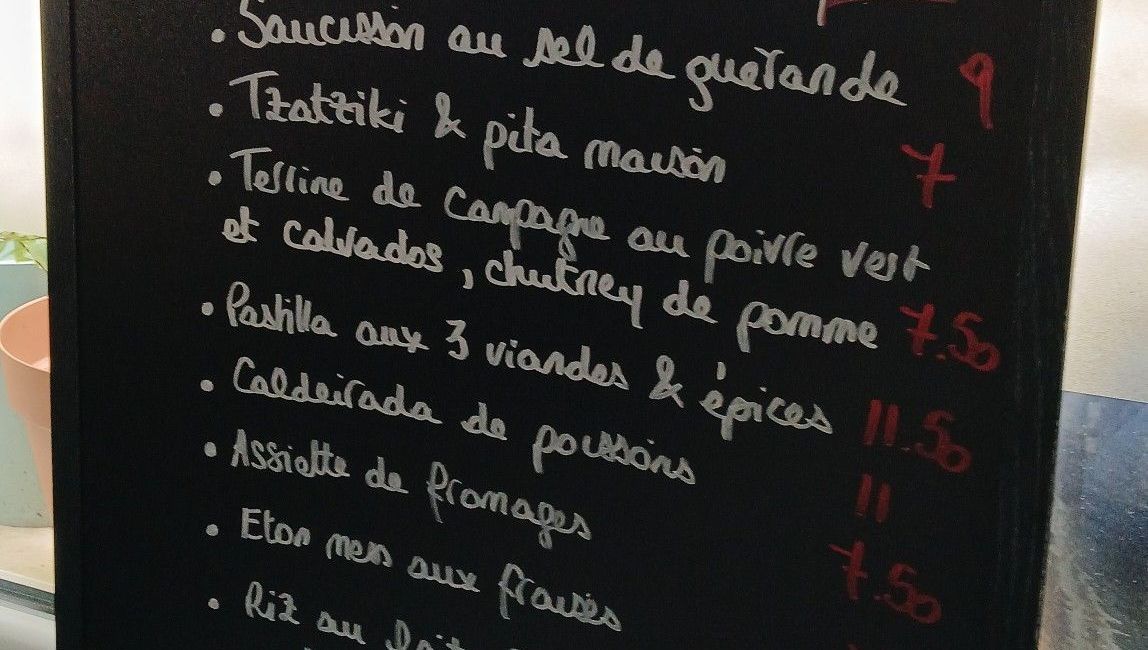 • Saucisson au sel de guérande 9
• Tzatziki & pita maison 7
• Terrine de campagne au poivre vert
et calvados, chutney de pomme 7.50
• Pastilla aux 3 viandes & épices 11.50
• Caldeirada de poissons 11
• Assiette de fromages 7.50
• Eton mess aux fraises
• Riz au lait